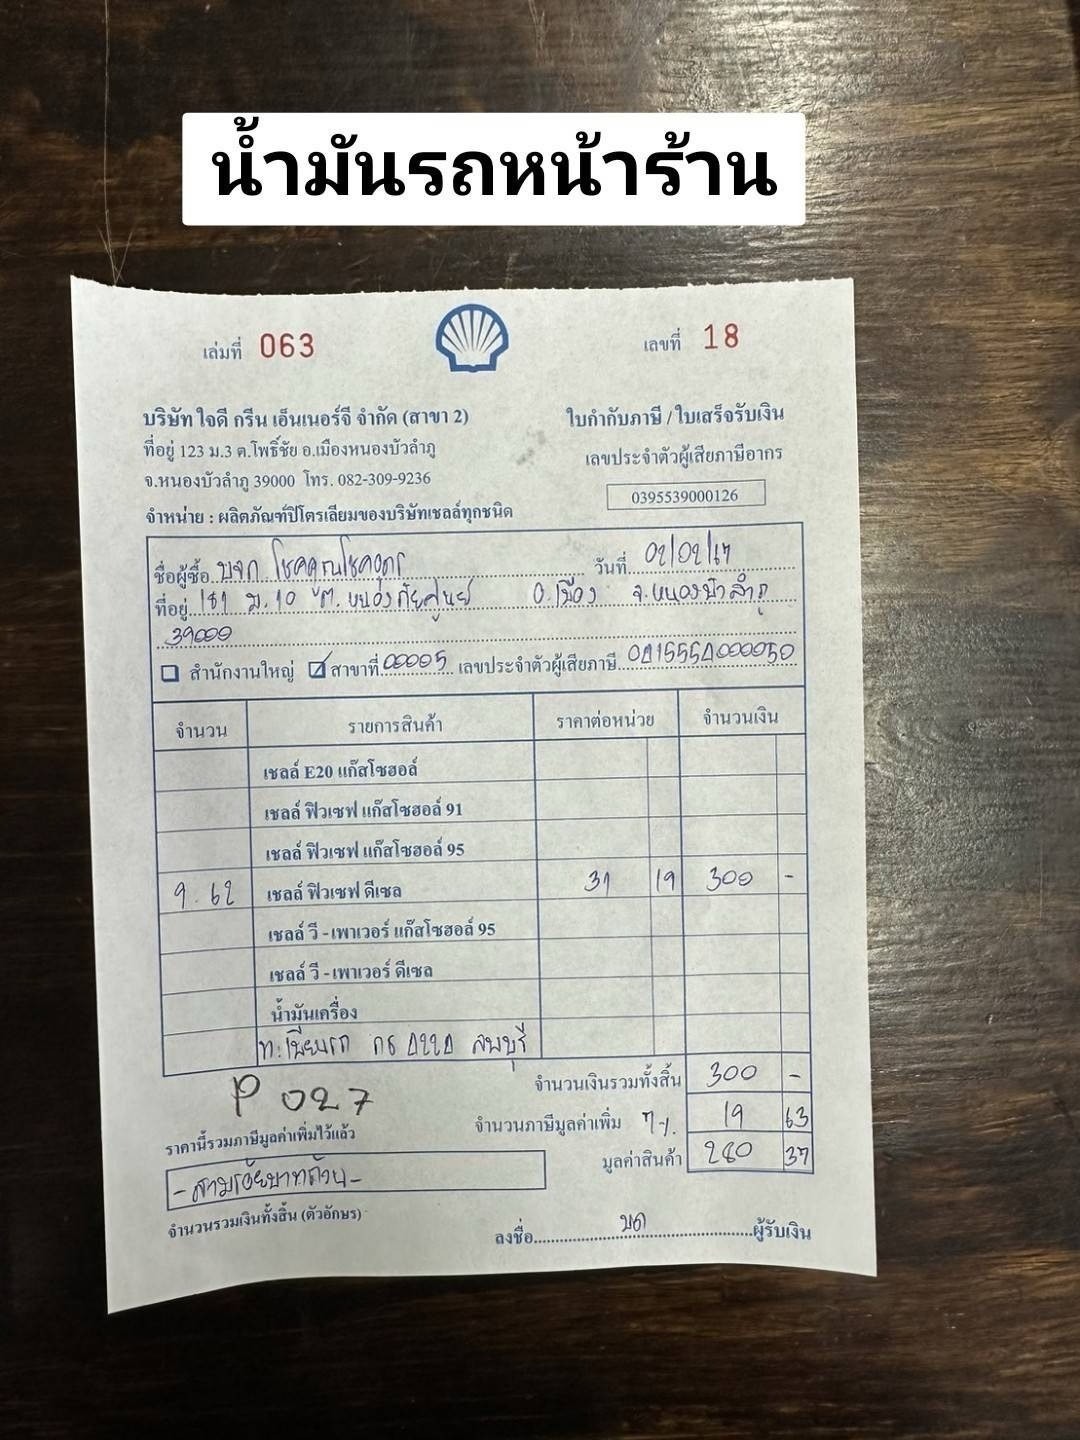 น้ำมันรถหน้าร้าน
เล่มที่ 063
เลขที่ 18
บริษัท ใจดี กรีน เอ็นเนอร์จี จำกัด (สาขา 2)
ใบกำกับภาษี / ใบเสร็จรับเงิน
ที่อยู่ 123 ม.3 ต.โพธิ์ชัย อ.เมืองหนองบัวลำภู
เลขประจำตัวผู้เสียภาษีอากร
จ.หนองบัวลำภู 39000 โทร. 082-309-9236
0395539000126
จำหน่าย : ผลิตภัณฑ์ปิโตรเลียมของบริษัทเชลล์ทุกชนิด
ชื่อผู้ซื้อ บจก. โชคคูณโชคอุดร วันที่ 02/02/67
ที่อยู่ 181 ม.10 ต. อ.เมือง จ.หนองบัวลำภู
39000
สำนักงานใหญ่ สาขาที่ 00005 เลขประจำตัวผู้เสียภาษี
จำนวน รายการสินค้า ราคาต่อหน่วย จำนวนเงิน
เชลล์ E20 แก๊สโซฮอล์
เชลล์ ฟิวเซฟ แก๊สโซฮอล์ 91
เชลล์ ฟิวเซฟ แก๊สโซฮอล์ 95
9.62 เชลล์ ฟิวเซฟ ดีเซล 31 19 300 -
เชลล์ วี - เพาเวอร์ แก๊สโซฮอล์ 95
เชลล์ วี - เพาเวอร์ ดีเซล
น้ำมันเครื่อง
ท.เบียนรถ ลพบุรี
จำนวนเงินรวมทั้งสิ้น 300 -
P 027
จำนวนภาษีมูลค่าเพิ่ม 7% 19 63
ราคานี้รวมภาษีมูลค่าเพิ่มไว้แล้ว
มูลค่าสินค้า 280 37
-สามร้อยบาทถ้วน-
จำนวนรวมเงินทั้งสิ้น (ตัวอักษร)
ลงชื่อ ผู้รับเงิน